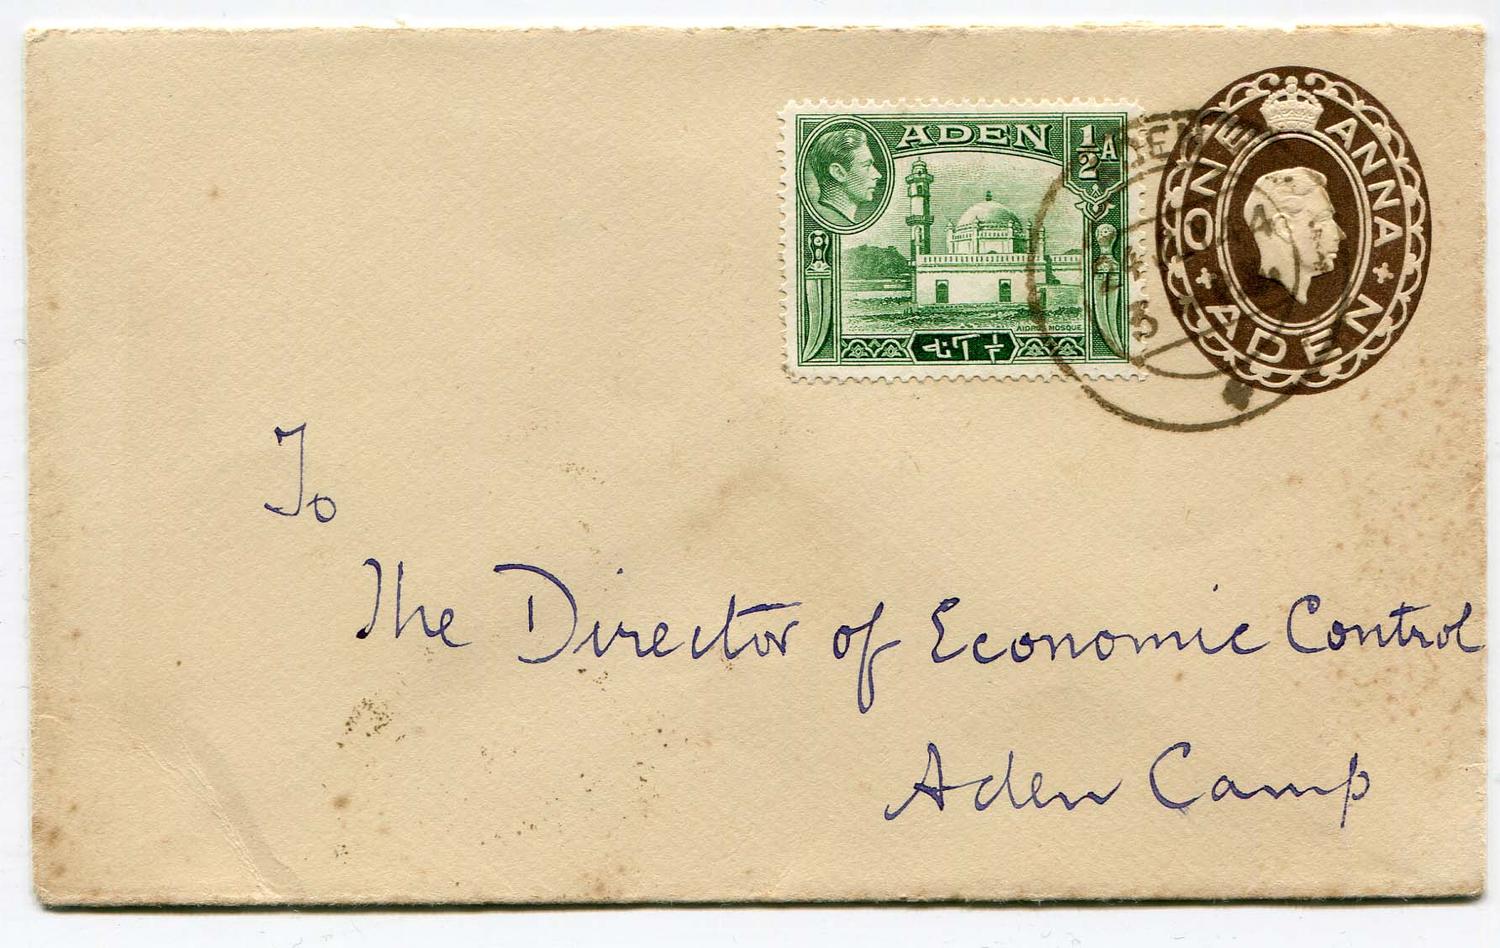 ADEN
½A
AIDRUS MOSQUE
ONE ANNA
ADEN
ADEN
To
The Director of Economic Control
Aden Camp